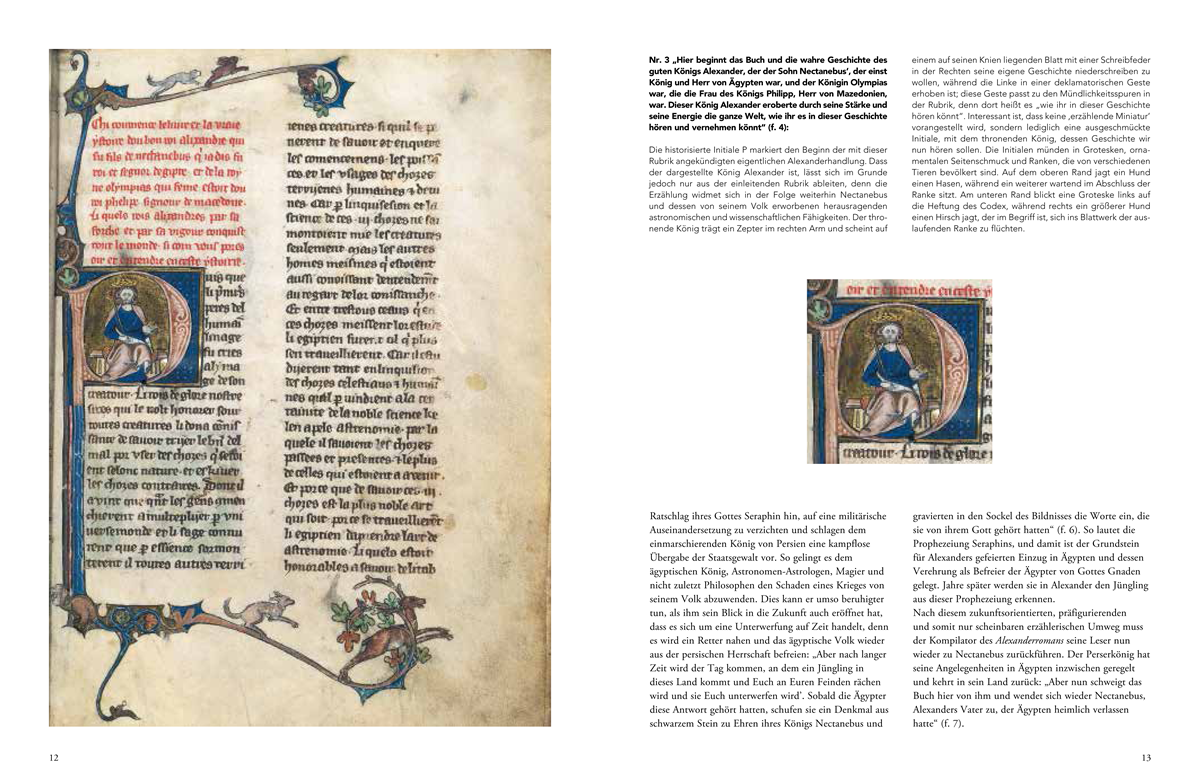 Chi commence li liure et la vraie
ystoire dou bon roi alixandre qui
fu fils de nectanebus q iadis fu
roi et segnor degipte . et de la roy
ne olympias qui feme estoit dou
roi phelipe signour de macedone.
Li quels rois alixandres par sa
forche et par sa vigour conquist
tout le monde . si com vous pores
oir et entendre en ceste ystoire.
uis que
li
peres del
humai
linage
fu cries
a lyma
ge de son
creatour . Li rois de gloire nostre
sires qui le volt honorer sour
toutes creatures li dona
sance de sauoir
mal por vser des choses
ent selonc nature . et eskiuer
les choses contraires . Dont il
auint que les gens
a multeplijer
uersemonde et li sage
rent que
rerent il toutes autres
ienes creatures . si
nerent de sauoir et enquerre
les comencemens . les
ces et les vsages des choses
terrijenes humaines
nes . Car linquisicion et la
science de ces choses ne
les creatures
seulement . Mais les autres
homes meismes estoient
aussi conoissant
au regart de lor
Et entre trestous ceaus
ces choses meissent lor estuire
li egiptien furent plus
sen traueillierent . Car il estu
dijerent tant en linquision
des choses celestiaus
nes
tainite de la noble science ke
len apele astrenomie . par la
quele il sauoient les choses
passees et presentes
de celles qui estoient a auenir.
Et por ce que de sauoir ces
choses est la plus noble art
qui soit . por ce se traueillierent
li egiptien
astrenomie . Li quels estoit
honorables a sauoir
12
Nr. 3 „Hier beginnt das Buch und die wahre Geschichte des
guten Königs Alexander, der der Sohn Nectanebus’, der einst
König und Herr von Ägypten war, und der Königin Olympias
war, die die Frau des Königs Philipp, Herr von Mazedonien,
war. Dieser König Alexander eroberte durch seine Stärke und
seine Energie die ganze Welt, wie ihr es in dieser Geschichte
hören und vernehmen könnt“ (f. 4):
Die historisierte Initiale P markiert den Beginn der mit dieser
Rubrik angekündigten eigentlichen Alexanderhandlung. Dass
der dargestellte König Alexander ist, lässt sich im Grunde
jedoch nur aus der einleitenden Rubrik ableiten, denn die
Erzählung widmet sich in der Folge weiterhin Nectanebus
und dessen von seinem Volk erworbenen herausragenden
astronomischen und wissenschaftlichen Fähigkeiten. Der thro-
nende König trägt ein Zepter im rechten Arm und scheint auf
einem auf seinen Knien liegenden Blatt mit einer Schreibfeder
in der Rechten seine eigene Geschichte niederschreiben zu
wollen, während die Linke in einer deklamatorischen Geste
erhoben ist; diese Geste passt zu den Mündlichkeitsspuren in
der Rubrik, denn dort heißt es „wie ihr in dieser Geschichte
hören könnt“. Interessant ist, dass keine ‚erzählende Miniatur’
vorangestellt wird, sondern lediglich eine ausgeschmückte
Initiale, mit dem thronenden König, dessen Geschichte wir
nun hören sollen. Die Initialen münden in Grotesken, orna-
mentalen Seitenschmuck und Ranken, die von verschiedenen
Tieren bevölkert sind. Auf dem oberen Rand jagt ein Hund
einen Hasen, während ein weiterer wartend im Abschluss der
Ranke sitzt. Am unteren Rand blickt eine Groteske links auf
die Heftung des Codex, während rechts ein größerer Hund
einen Hirsch jagt, der im Begriff ist, sich ins Blattwerk der aus-
laufenden Ranke zu flüchten.
oir et entendre en ceste y
creatour . Li rois de gloire
Ratschlag ihres Gottes Seraphin hin, auf eine militärische
Auseinandersetzung zu verzichten und schlagen dem
einmarschierenden König von Persien eine kampflose
Übergabe der Staatsgewalt vor. So gelingt es dem
ägyptischen König, Astronomen-Astrologen, Magier und
nicht zuletzt Philosophen den Schaden eines Krieges von
seinem Volk abzuwenden. Dies kann er umso beruhigter
tun, als ihm sein Blick in die Zukunft auch eröffnet hat,
dass es sich um eine Unterwerfung auf Zeit handelt, denn
es wird ein Retter nahen und das ägyptische Volk wieder
aus der persischen Herrschaft befreien: „Aber nach langer
Zeit wird der Tag kommen, an dem ein Jüngling in
dieses Land kommt und Euch an Euren Feinden rächen
wird und sie Euch unterwerfen wird’. Sobald die Ägypter
diese Antwort gehört hatten, schufen sie ein Denkmal aus
schwarzem Stein zu Ehren ihres Königs Nectanebus und
gravierten in den Sockel des Bildnisses die Worte ein, die
sie von ihrem Gott gehört hatten“ (f. 6). So lautet die
Prophezeiung Seraphins, und damit ist der Grundstein
für Alexanders gefeierten Einzug in Ägypten und dessen
Verehrung als Befreier der Ägypter von Gottes Gnaden
gelegt. Jahre später werden sie in Alexander den Jüngling
aus dieser Prophezeiung erkennen.
Nach diesem zukunftsorientierten, präfigurierenden
und somit nur scheinbaren erzählerischen Umweg muss
der Kompilator des Alexanderromans seine Leser nun
wieder zu Nectanebus zurückführen. Der Perserkönig hat
seine Angelegenheiten in Ägypten inzwischen geregelt
und kehrt in sein Land zurück: „Aber nun schweigt das
Buch hier von ihm und wendet sich wieder Nectanebus,
Alexanders Vater zu, der Ägypten heimlich verlassen
hatte“ (f. 7).
13